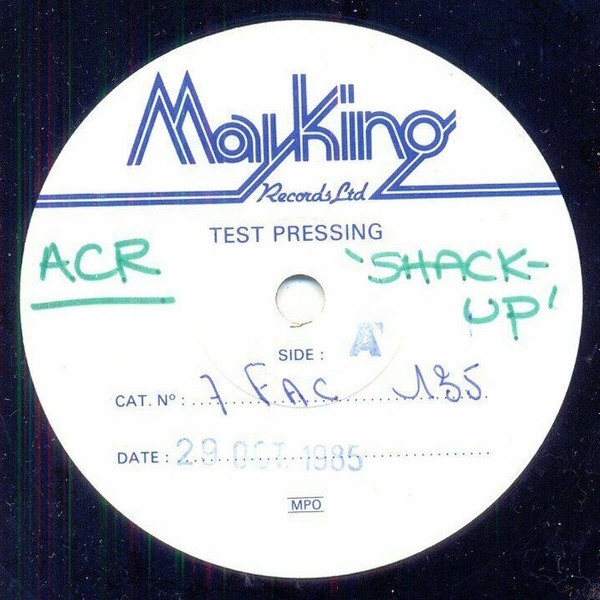 Mayking
Records Ltd
TEST PRESSING
ACR
'SHACK-
UP'
SIDE : A
CAT. Nº : 7 FAC 135
DATE : 29 OCT 1985
MPO